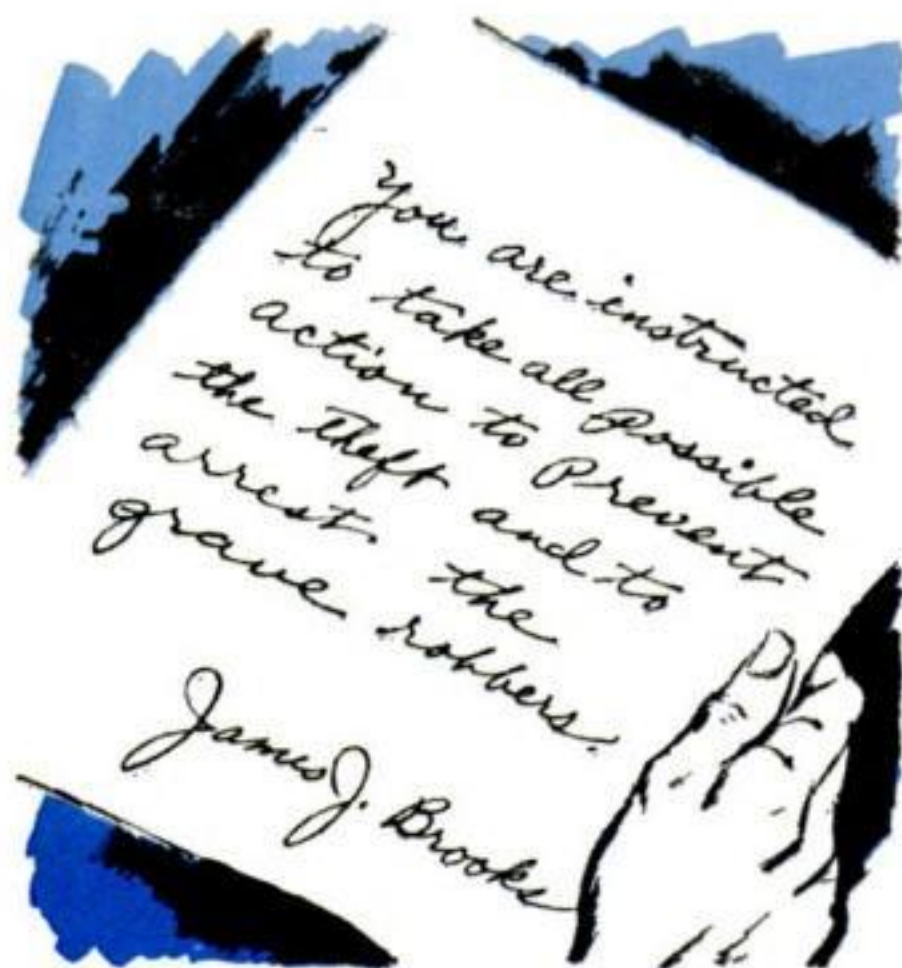 You are instructed
to take all Possible
action to Prevent
the theft and to
arrest the
grave robbers.
James J. Brooks